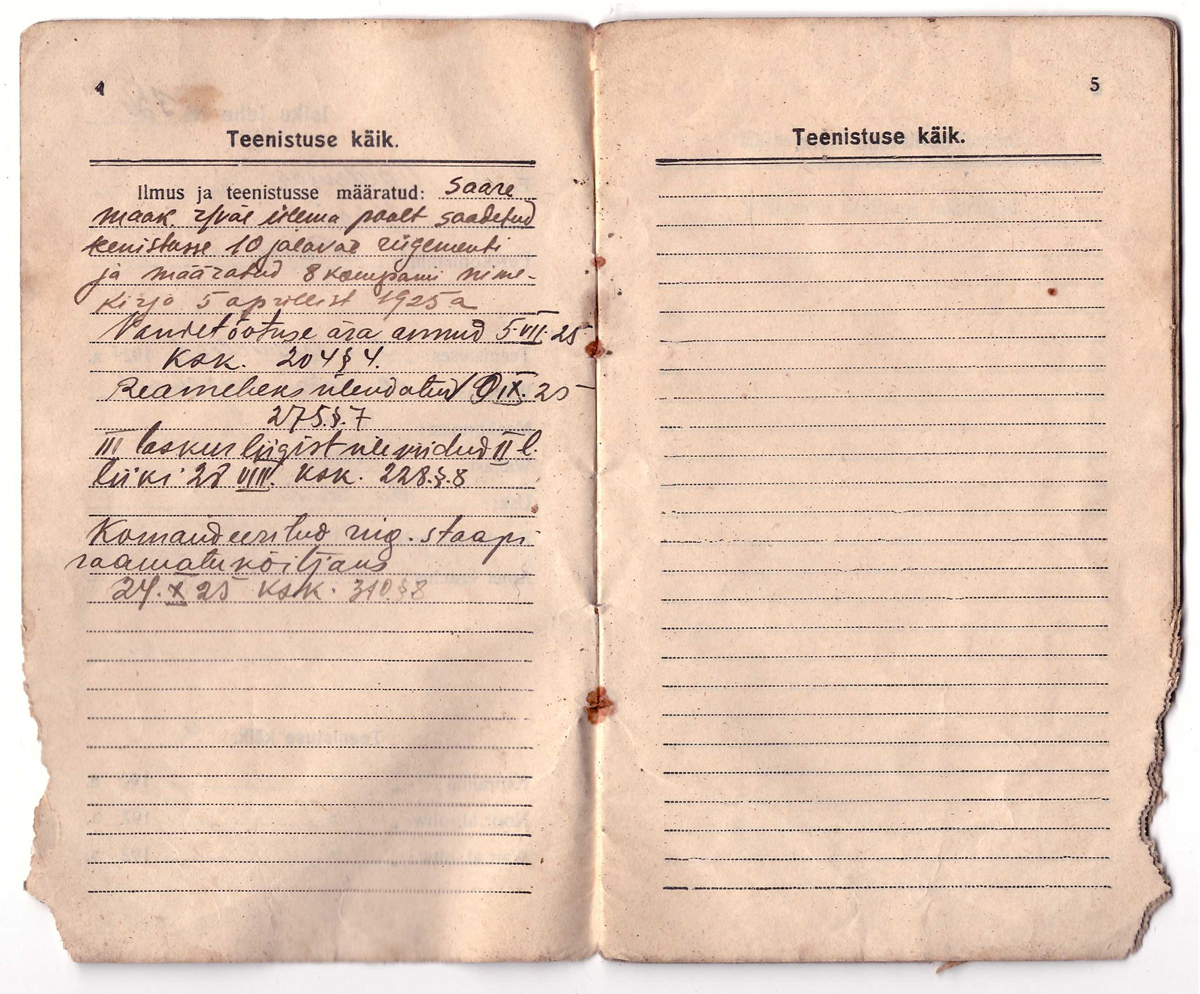 4
Teenistuse käik.
Ilmus ja teenistusse määratud: Saare
maak r/väe ülema poolt saadetud
tenistusse 10 jalaväe rügementi
ja määratud 8 kompanii nime-
kirja 5 aprillist 1925 a
Vandetõotuse ära annud 5.VII.25
KSK. 204 § 4.
Reameheks ülendatud IX.25
275.§.7
III laskur liigist üle viidud II l.
liiki 28 VIII. KSK. 228.§.8
Komandeeritud rüg. staapi
raamatuköitjaks
24.X 25 KSK. 310.§8
5
Teenistuse käik.